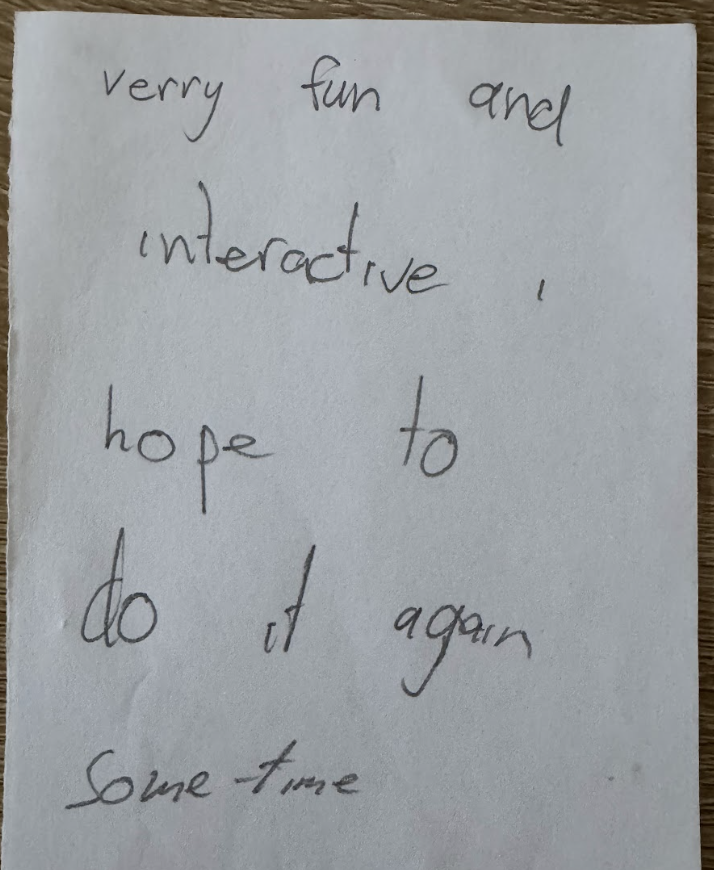 verry fun and
interactive ,
hope to
do it again
some-time